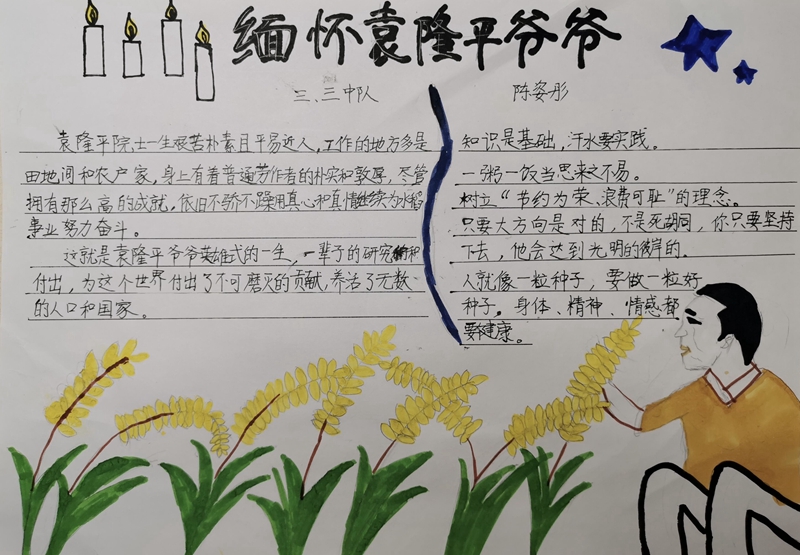 缅怀袁隆平爷爷
三、三中队 陈姿彤
袁隆平院士一生艰苦朴素且平易近人，工作的地方多是
田地间和农户家，身上有着普通劳作者的朴实和敦厚，尽管
拥有那么高的成就，依旧不骄不躁用真心和真情继续为水稻
事业努力奋斗。
这就是袁隆平爷爷英雄式的一生，一辈子的研究和
付出，为这个世界付出了不可磨灭的贡献，养活了无数
的人口和国家。
知识是基础，汗水要实践。
一粥一饭当思来之不易。
树立“节约为荣、浪费可耻”的理念。
只要大方向是对的，不是死胡同，你只要坚持
下去，他会达到光明的彼岸的。
人就像一粒种子，要做一粒好
种子，身体、精神、情感都
要健康。